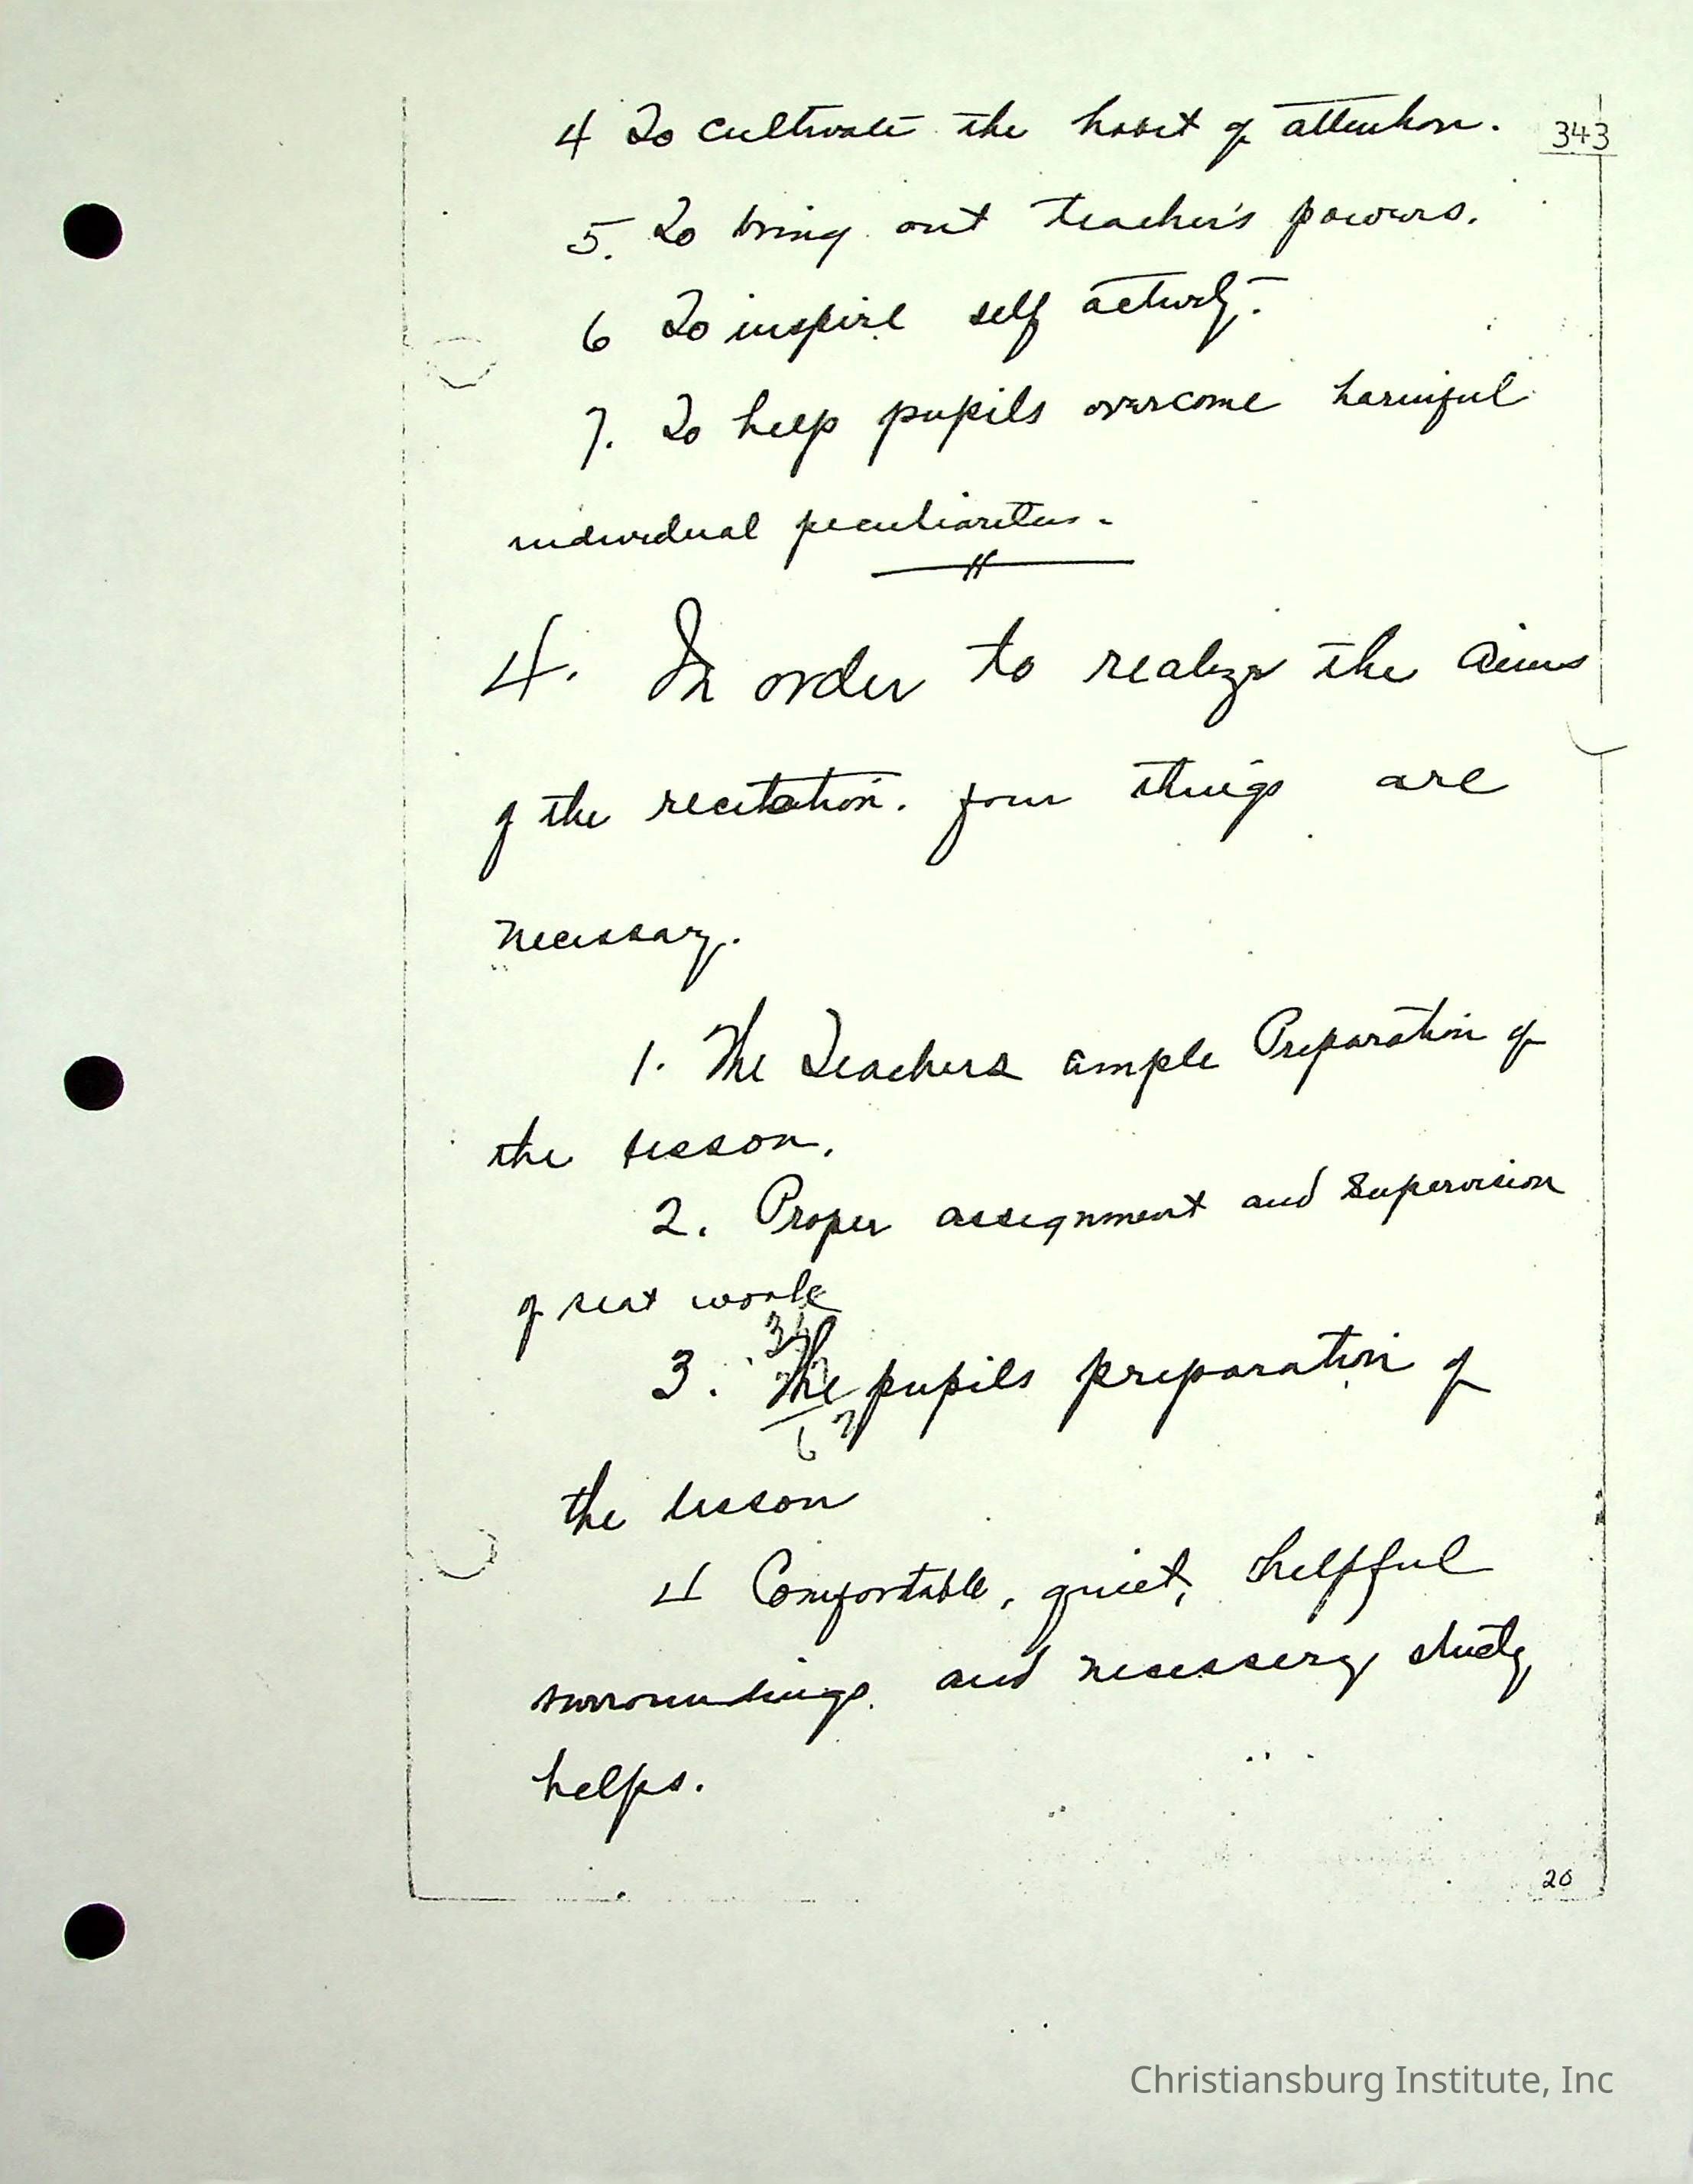 343
4 To cultivate the habit of attention.
5. To bring out teacher's powers.
6 To inspire self activity.
7. To help pupils overcome harmful
individual peculiarities.
4. In order to realize the aims
of the recitation. four things are
necessary.
1. The Teachers ample Preparation of
the lesson.
2. Proper assignment and supervision
of seat work
3. The pupils preparation of
the lesson
4 Comfortable, quiet, helpful
surroundings and necessery study
helps.
20
Christiansburg Institute, Inc